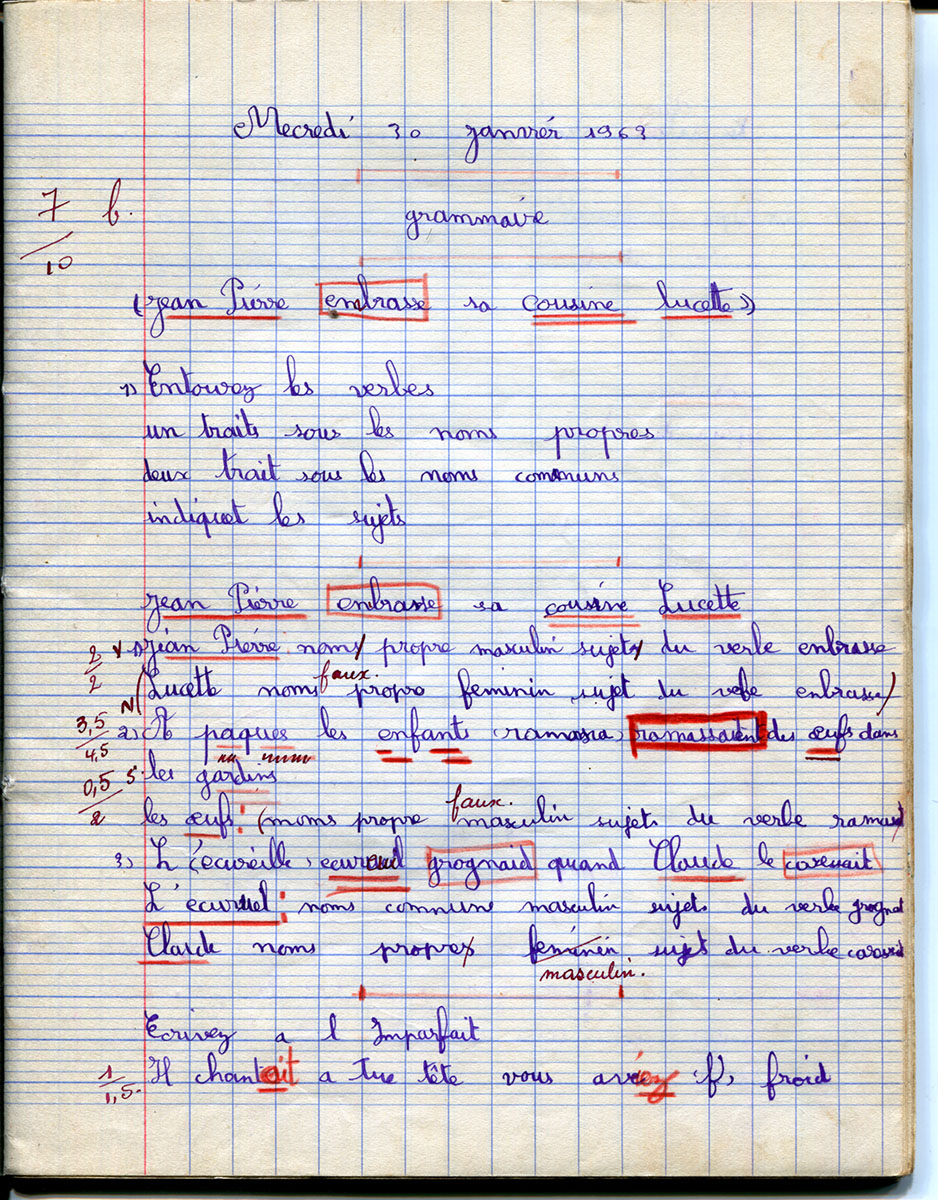 Mecredi 30 janvier 1963
7 b.
10
grammaire
(jean Pierre enbrasse sa cousine lucette)
1) Entourez les verbes
un traits sous les noms propres
deux trait sous les noms communs
indiquet les sujets
jean Pierre enbrasse sa cousine Lucette
2/2 1) jean Pierre noms propre masculin sujets du verbe enbrasse
faux.
N (Lucette noms propre feminin sujet du vebe enbrasse)
3,5/4,5 2) A paques les enfants (ramasia) ramassaient des œufs dans
0,5/2 s. les gardins
faux.
les œufs: (noms propre masculin sujets du verbe
3) L'écureille, grognaid quand Claude le
L'écureuil: noms commune masculin sujets du verbe grognat
Claude noms propres feminin sujet du verbe
masculin.
Ecrivez a l Imparfait
1/1,5. Il chantait a tue tête vous aviez f, froid